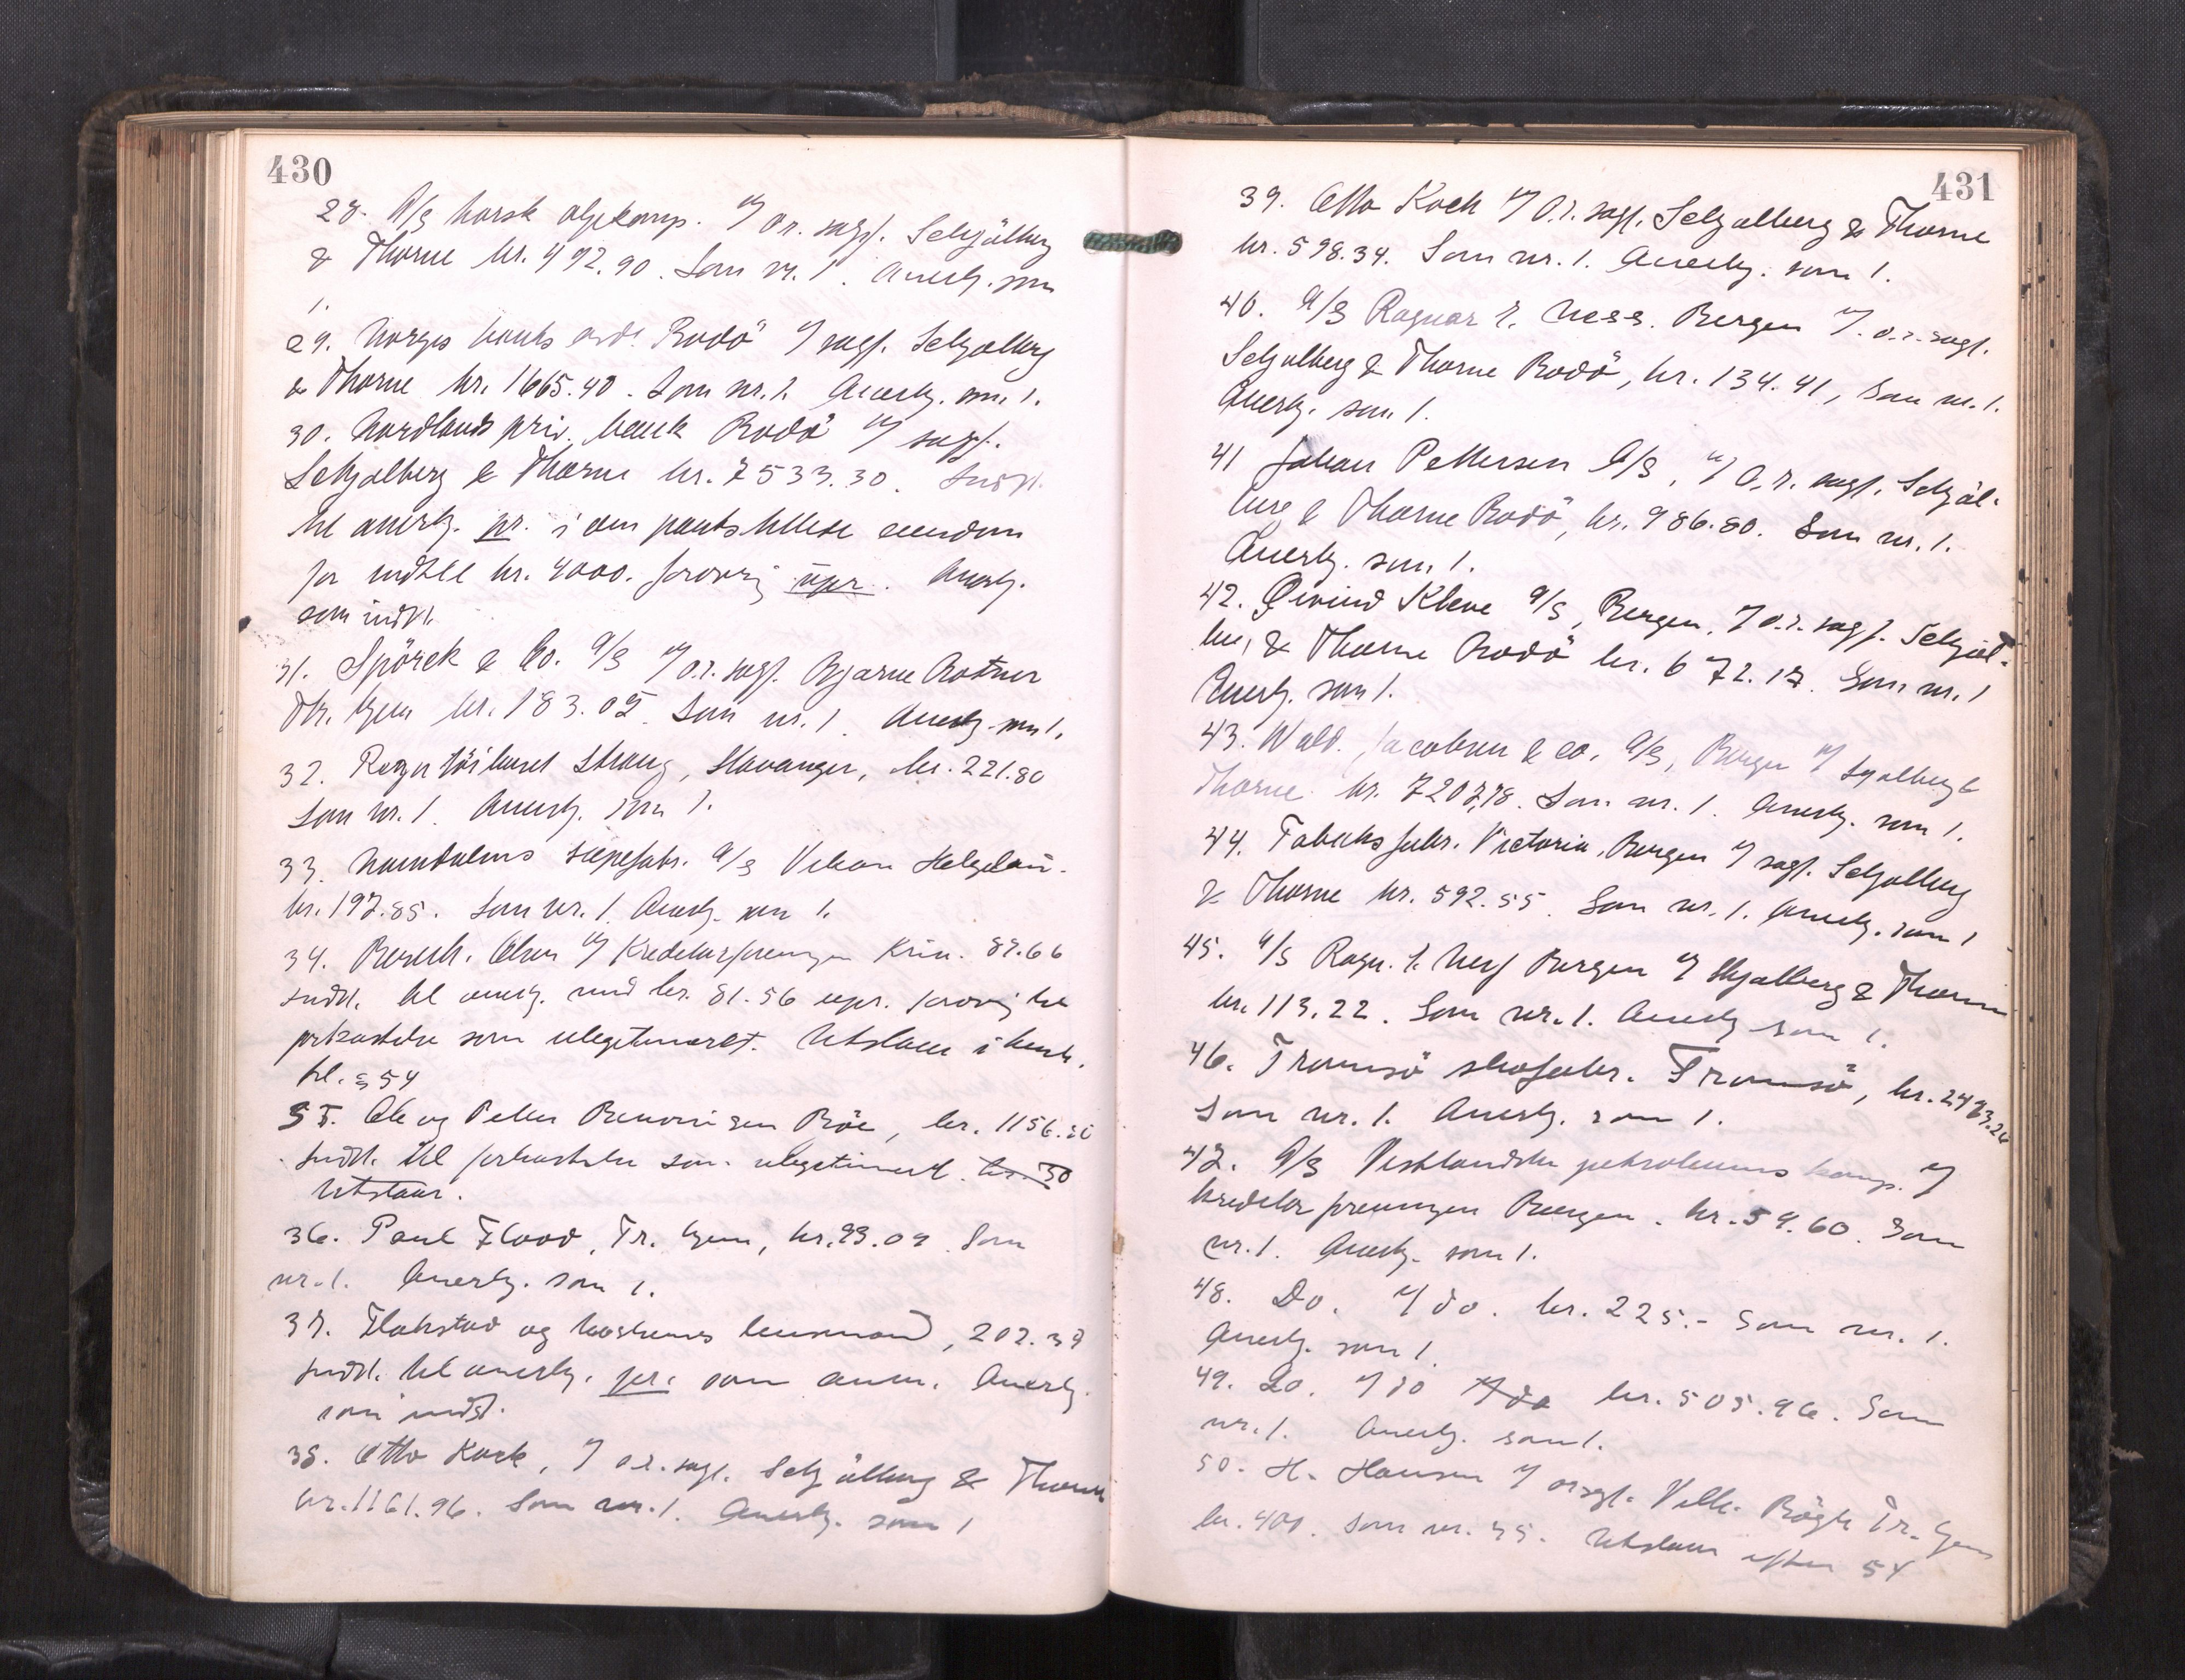 430
28. A/S Norsk oljekomp. v/ o.r. sagf. Schjølberg
& Thorne kr. 492.90. Som nr. 1. Anerkj. som
1.
29. Norges banks avd. Bodö v/ sagf. Schjølberg
& Thorne kr. 1665.40. Som nr. 1. Anerkj. som 1.
30. Nordlands priv. bank Bodö v/ sagf.
Schjølberg & Thorne kr. 7533.30. Indst.
til anerkj. pr. i den pantstillede eiendom
for indtil kr. 4000. forøvrig upr. Anerkj.
som indst.
31. Spörck & Co. A/S v/ o.r. sagf. Bjarne Rotner
Tr. hjem kr. 183.05. Som nr. 1. Anerkj. som 1.
32. Strang, Stavanger, kr. 221.80
Som nr. 1. Anerkj. som 1.
33. Namdalens såpefabr. A/S Vikan Helgeland.
kr. 197.85. Som nr. 1. Anerkj. som 1.
34. Olsen v/ Kreditorforeningen Krin. 87.66
Indst. til anerkj. med kr. 81.56 upr. forøvrig til
forkastelse som ulegitimeret. Utslaar i henh.
til. § 54
35. Ole og Petter Benonisen Böe, kr. 1156.20
Indst. til forkastelse som ulegitimert.
Utslaar.
36. Paul Flood, Tr. hjem, kr. 93.09. Som
nr. 1. Anerkj. som 1.
37. Flakstad og lensmand, 202.37
Indst. til anerkj. pr. som anm. Anerkj.
som indst.
38. Otto Koch, v/ o.r. sagf. Schjølberg & Thorne
kr. 1161.96. Som nr. 1. Anerkj. som 1
431
39. Otto Koch v/ O.r. sagf. Schjølberg & Thorne
kr. 598.34. Som nr. 1. Anerkj. som 1.
40. A/S Ragnar L. Ness. Bergen v/ o.r. sagf.
Schjølberg & Thorne Bodö, kr. 134.41, Som nr. 1.
Anerkj. som 1.
41 Johan Pettersen A/S, v/ O.r. sagf. Schjøl-
berg & Thorne Bodö, kr. 986.80. Som nr. 1.
Anerkj. som 1.
42. Øivind Kleve A/S, Bergen, v/ o.r. sagf. Schjøl-
berg & Thorne Bodö kr. 672.17. Som nr. 1
Anerkj. som 1.
43. Wald. Jacobsen & Co. A/S, Bergen v/ Sjølberg &
Thorne kr. 7207,78. Som nr. 1. Anerkj. som 1.
44. Tobaksfabr. Victoria, Bergen v/ sagf. Schjølberg
& Thorne kr. 592.55. Som nr. 1. Anerkj. som 1
45. A/S Ragn. L. Ness Bergen v/ Skjølberg & Thorne
kr. 113.22. Som nr. 1. Anerkj som 1.
46. Tromsö skofabr. Tromsö, kr. 2483.26
Som nr. 1. Anerkj. som 1.
47. A/S Vestlandske petroleums komp. v/
kreditorforeningen Bergen. kr. 59.60. Som
nr. 1. Anerkj. som 1.
48. Do. v/ do. kr. 225.- Som nr. 1.
Anerkj. som 1.
49. Do. v/ do v/ do kr. 505.96. Som
nr. 1. Anerkj. som 1.
50. H. Hansen v/ orsagf. Vilh. Bögh Tr. hjem
kr. 400. Som nr. 35. Utslaar efter 54